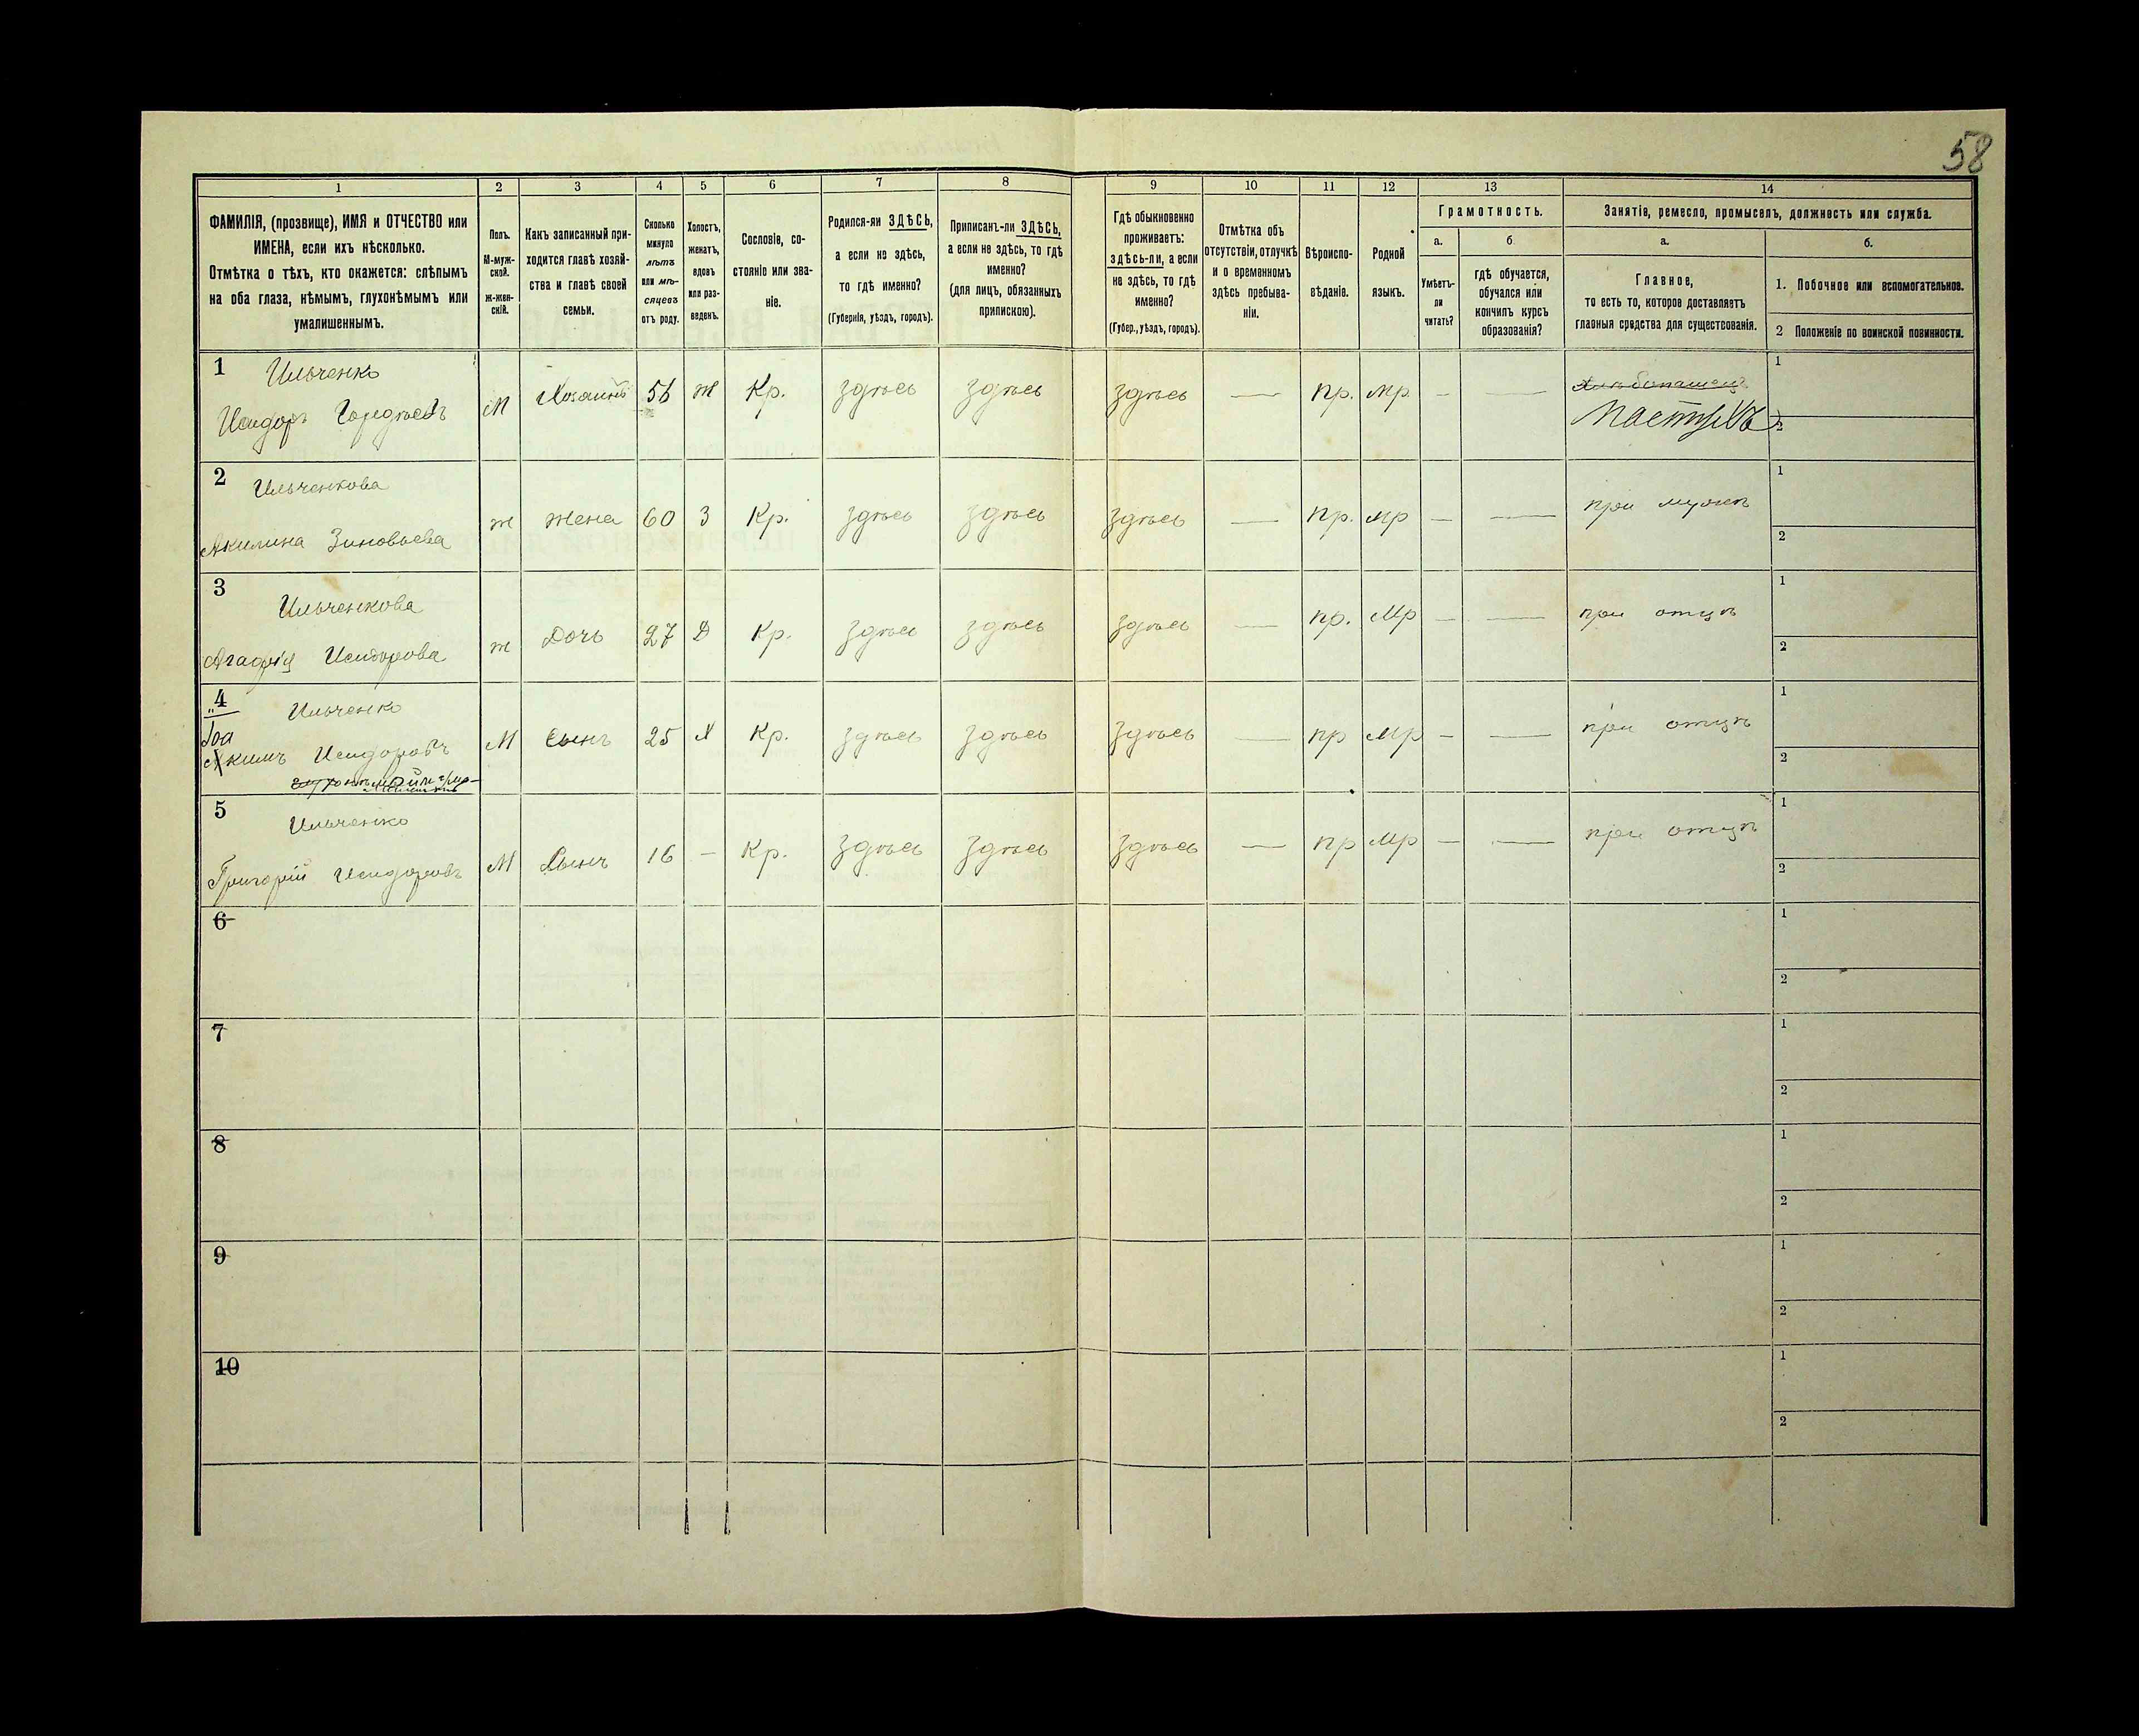 58
1 2 3 4 5 6 7 8 9 10 11 12 13 14
ФАМИЛІЯ, (прозвище), ИМЯ и ОТЧЕСТВО или
ИМЕНА, если ихъ нѣсколько.
Отмѣтка о тѣхъ, кто окажется: слѣпымъ
на оба глаза, нѣмымъ, глухонѣмымъ или
умалишеннымъ.
Полъ.
М-муж-
ской.
Ж-жен-
скій.
Какъ записанный при-
ходится главѣ хозяй-
ства и главѣ своей
семьи.
Сколько
минуло
лѣтъ
или мѣ-
сяцевъ
отъ роду.
Холостъ,
женатъ,
вдовъ
или раз-
веденъ.
Сословіе, со-
стояніе или зва-
ніе.
Родился-ли ЗДѢСЬ,
а если не здѣсь,
то гдѣ именно?
(Губернія, уѣздъ, городъ).
Приписанъ-ли ЗДѢСЬ,
а если не здѣсь, то гдѣ
именно?
(для лицъ, обязанныхъ
припискою).
Гдѣ обыкновенно
проживаетъ:
здѣсь-ли, а если
не здѣсь, то гдѣ
именно?
(Губер., уѣздъ, городъ).
Отмѣтка объ
отсутствіи, отлучкѣ
и о временномъ
здѣсь пребыва-
ніи.
Вѣроиспо-
вѣданіе.
Родной
языкъ.
Грамотность.
а.
Умѣетъ-
ли
читать?
б
гдѣ обучается,
обучался или
кончилъ курсъ
образованія?
Занятіе, ремесло, промыселъ, должность или служба.
а.
Главное,
то есть то, которое доставляетъ
главныя средства для существованія.
б.
1. Побочное или вспомогательное.
2 Положеніе по воинской повинности.
1 Ильченко
Исидоръ Гордѣевъ М Хозяинъ 56 ж Кр. здѣсь здѣсь здѣсь — пр. мр. - — Хлѣбопашецъ
Пастухъ
1
2
2 Ильченкова
Акилина Зиновьева ж жена 60 З Кр. здѣсь здѣсь здѣсь — пр. мр — — при мужѣ
1
2
3 Ильченкова
Агафія Исидорова ж Дочь 27 Д Кр. здѣсь здѣсь здѣсь — пр. мр — — при отцѣ
1
2
4 Ильченко
Іоа
Акимъ Исидоровъ М Сынъ 25 Х Кр. здѣсь здѣсь здѣсь — пр мр - — при отцѣ
1
2
5 Ильченко
Григорій Исидоровъ М Сынъ 16 — Кр. здѣсь здѣсь здѣсь — пр мр — — при отцѣ
1
2
6
1
2
7
1
2
8
1
2
9
1
2
10
1
2